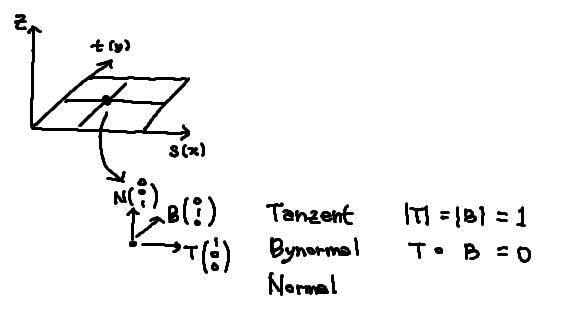 Z
t(y)
S(x)
N(0 0 1)
B(0 1 0)
T(1 0 0)
Tanzent |T| = |B| = 1
Bynormal T • B = 0
Normal